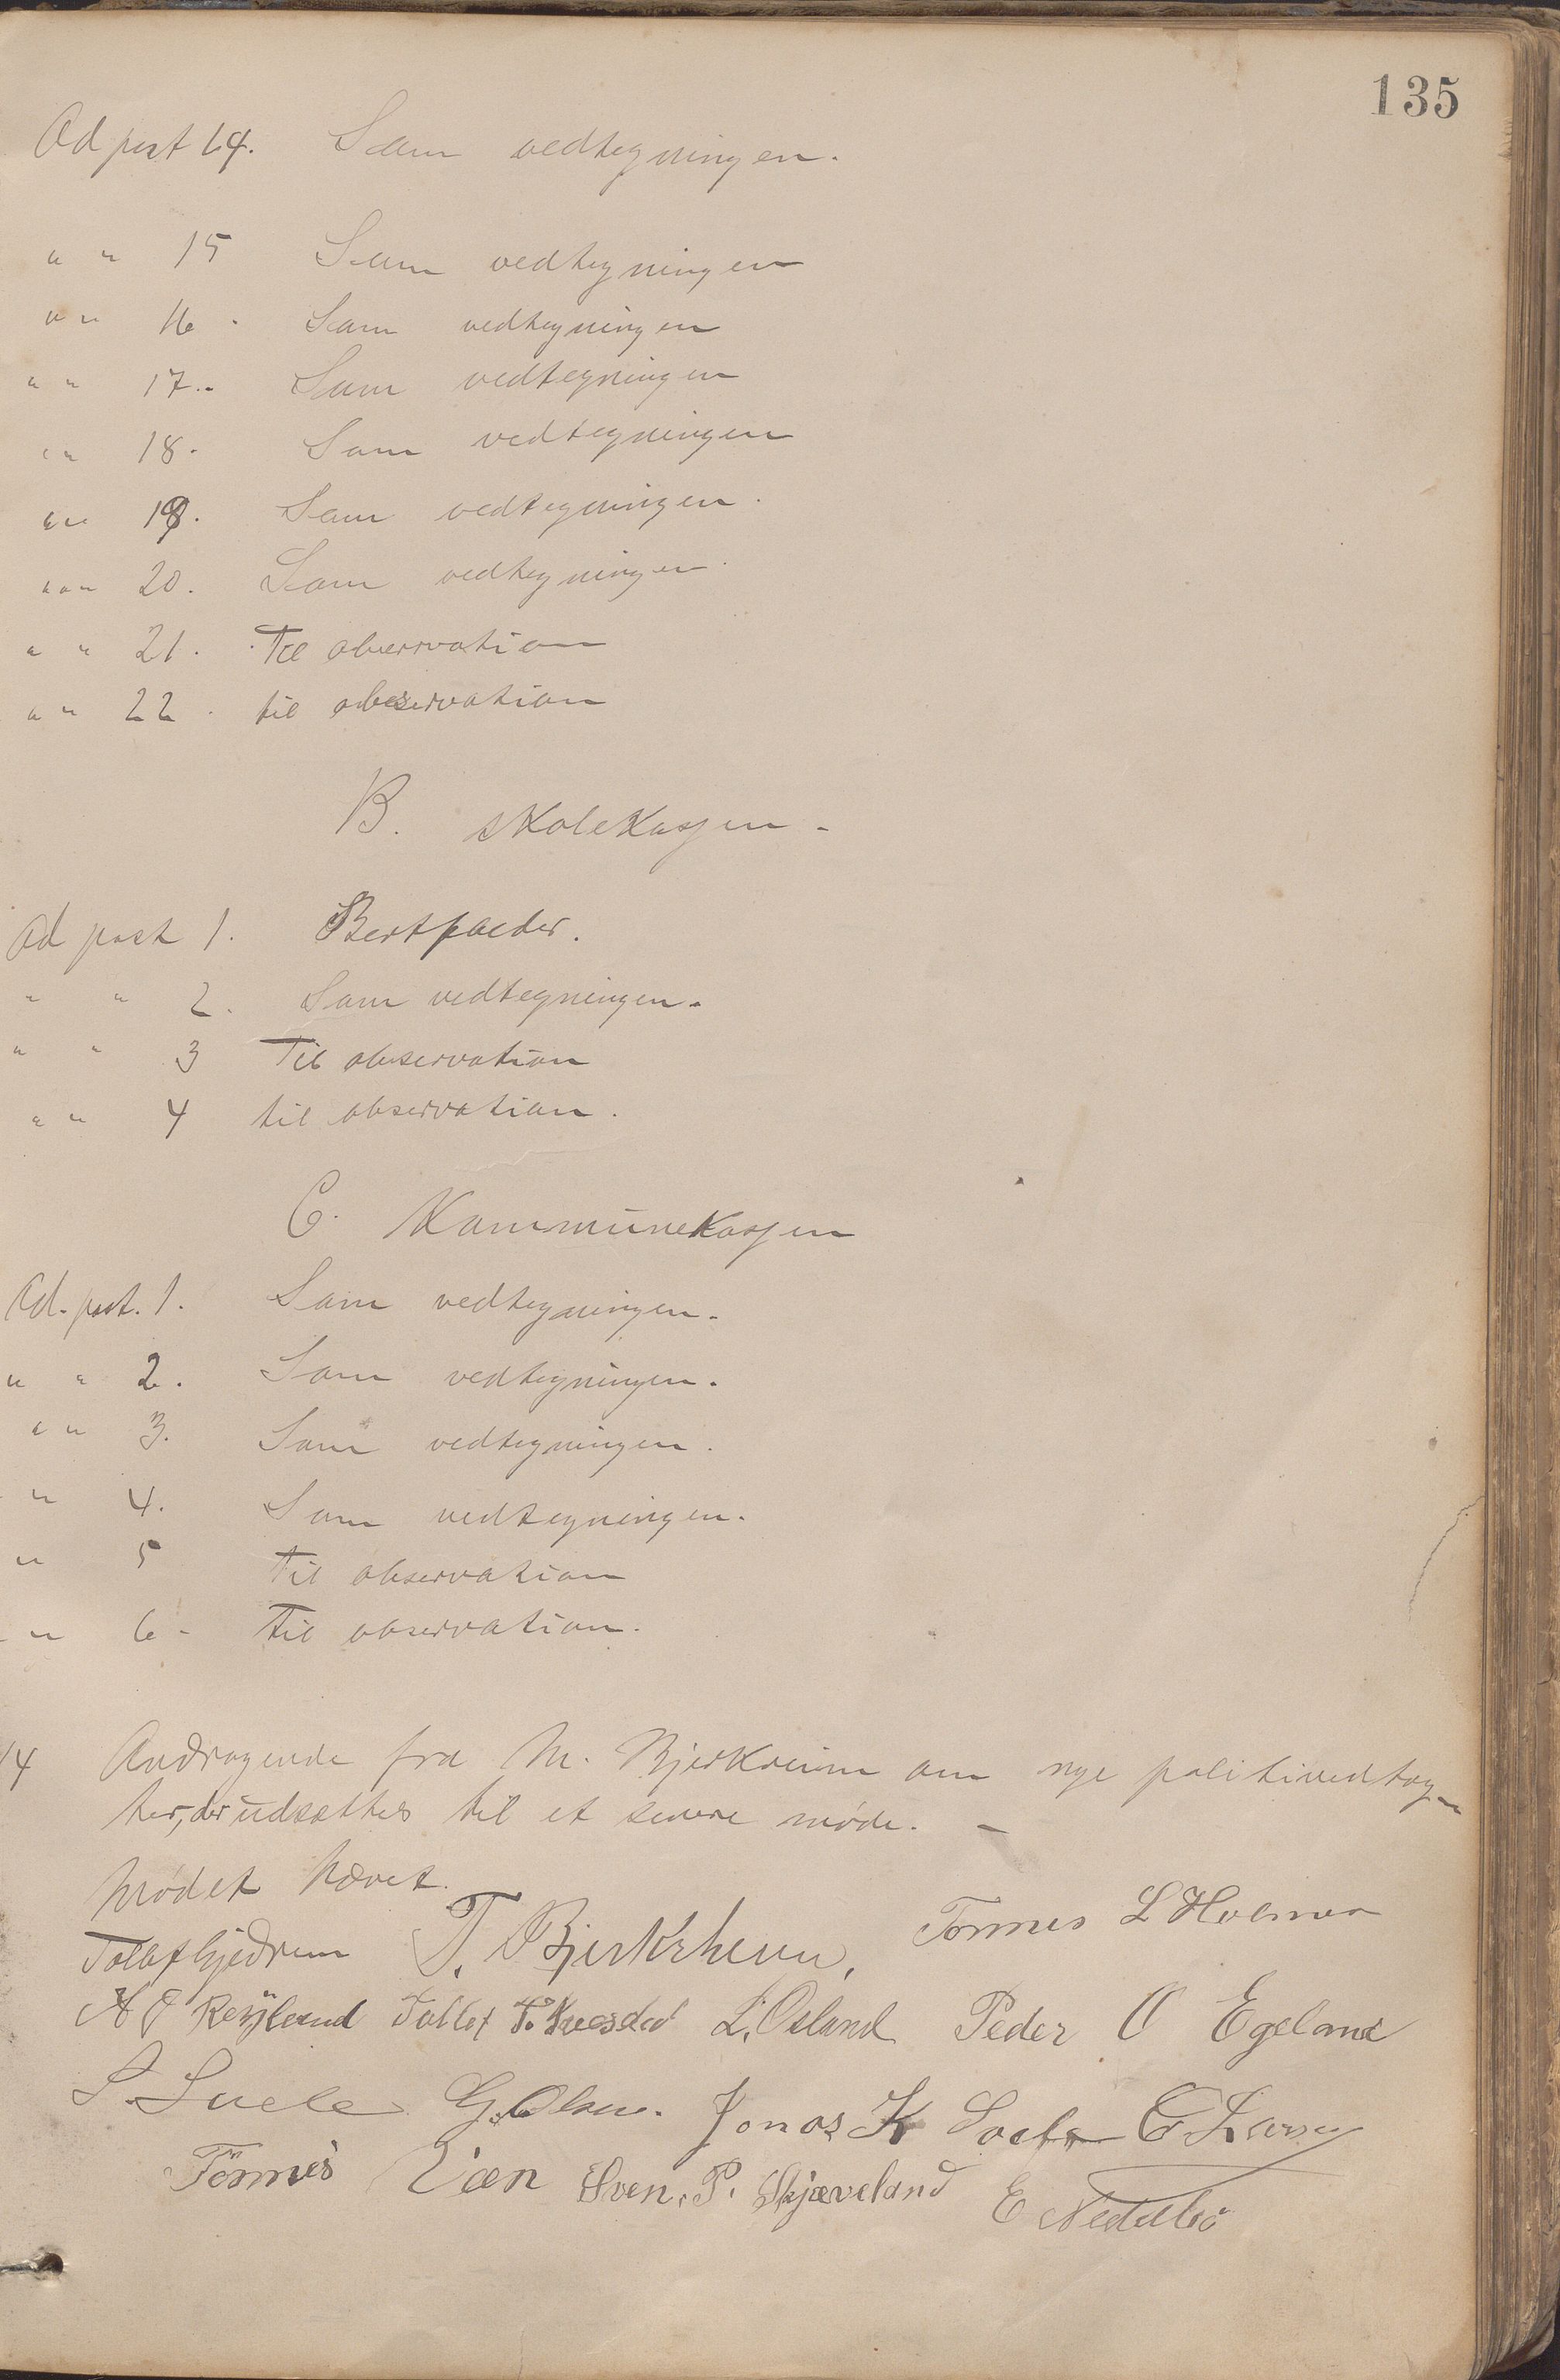 135
Ad post 14. Som vedtegningen.
" " 15 Som vedtegningen
" " 16 - Som vedtegningen
" " 17.- Som vedtegningen
" " 18. Som vedtegningen
" " 19. Som vedtegningen.
" " 20. Som vedtegningen.
" " 21. Til observation
" " 22. til observation
B. Skolekassen -
Ad post 1. Bortfalder.
" " 2. Som vedtegningen.
" " 3 Til observation
" " 4 til observation.
C. Kommunekassen
Ad. post. 1. Som vedtegningen.
" " 2. Som vedtegningen.
" " 3. Som vedtegningen.
" 4. Som vedtegningen.
" 5 Til observation
" 6 - Til observation.
14 Andragende fra M. Bjerkreim om nye politivedtæg-
ter, der udsættes til et senere møde. -
Mødet hævet.
T. Bjerkrheim, Tønnes L Holmen
A J Røyland Tollef T. L. Osland Peder O Egeland
G. Olsen. Jonas K
Tønnes Sven. P. Skjæveland E Nedrebö